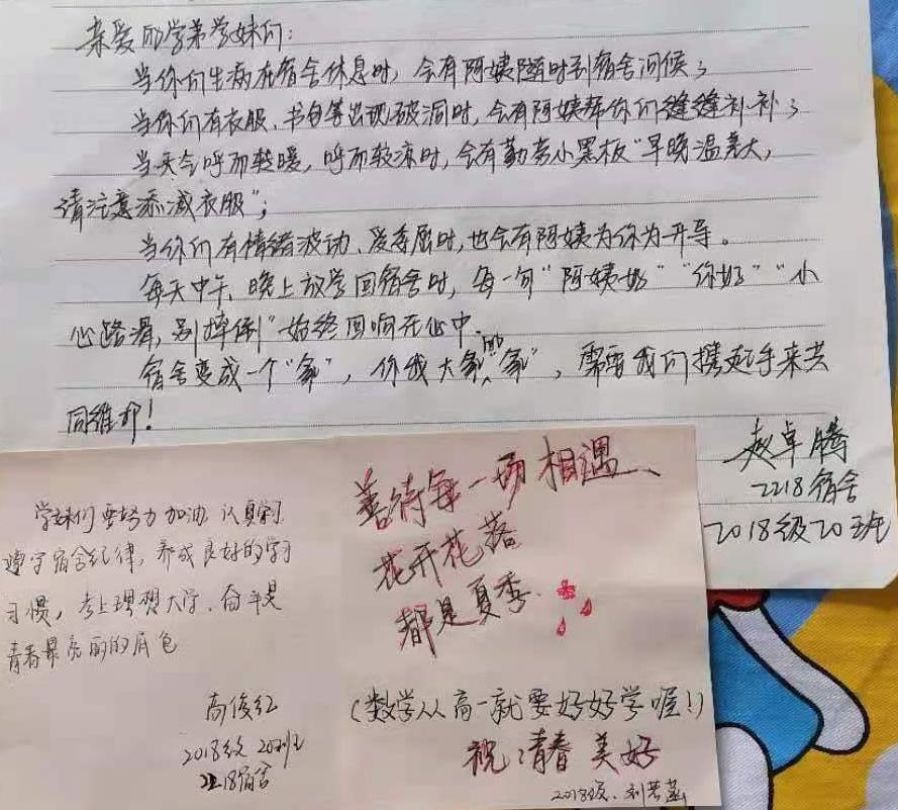 亲爱的学弟学妹们：
当你们生病在宿舍休息时，会有阿姨随时到宿舍问候；
当你们有衣服、书包等出现破洞时，会有阿姨帮你们缝缝补补；
当天会呼而转暖，呼而转凉时，会有勤劳小黑板“早晚温差大，
请注意添减衣服”；
当你们有情绪波动、受委屈时，也会有阿姨为你为开导。
每天中午、晚上放学回宿舍时，每一句“阿姨好”“你好”“小
心路滑，别摔倒”始终回响在心中.
宿舍变成一个“家”，你我大家的“家”，需要我们携起手来共
同维护！
赵卓腾
2218宿舍
2018级20班
学妹们要努力加油，认真学习
遵守宿舍纪律，养成良好的学习
习惯，考上理想大学.奋斗是
青春最亮丽的底色
高俊红
2018级20班
2218宿舍
善待每一场相遇、
花开花落
都是夏季.
（数学从高一就要好好学喔！）
祝：青春美好
2018级.刘